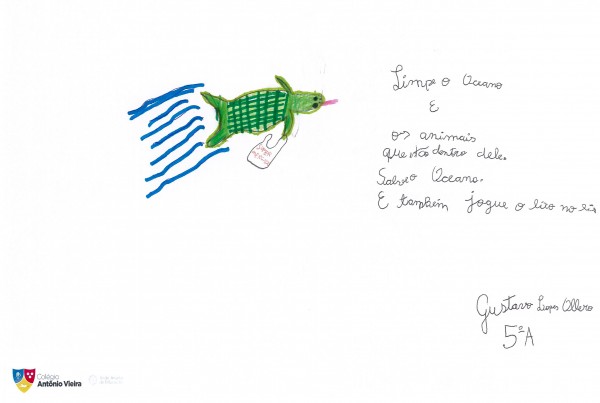 Limpe o Oceano
E
os animais
que estão dentro dele.
Salve o Oceano.
E também jogue o lixo no lix
Gustavo Lopes
5º A
Colégio
Antônio Vieira